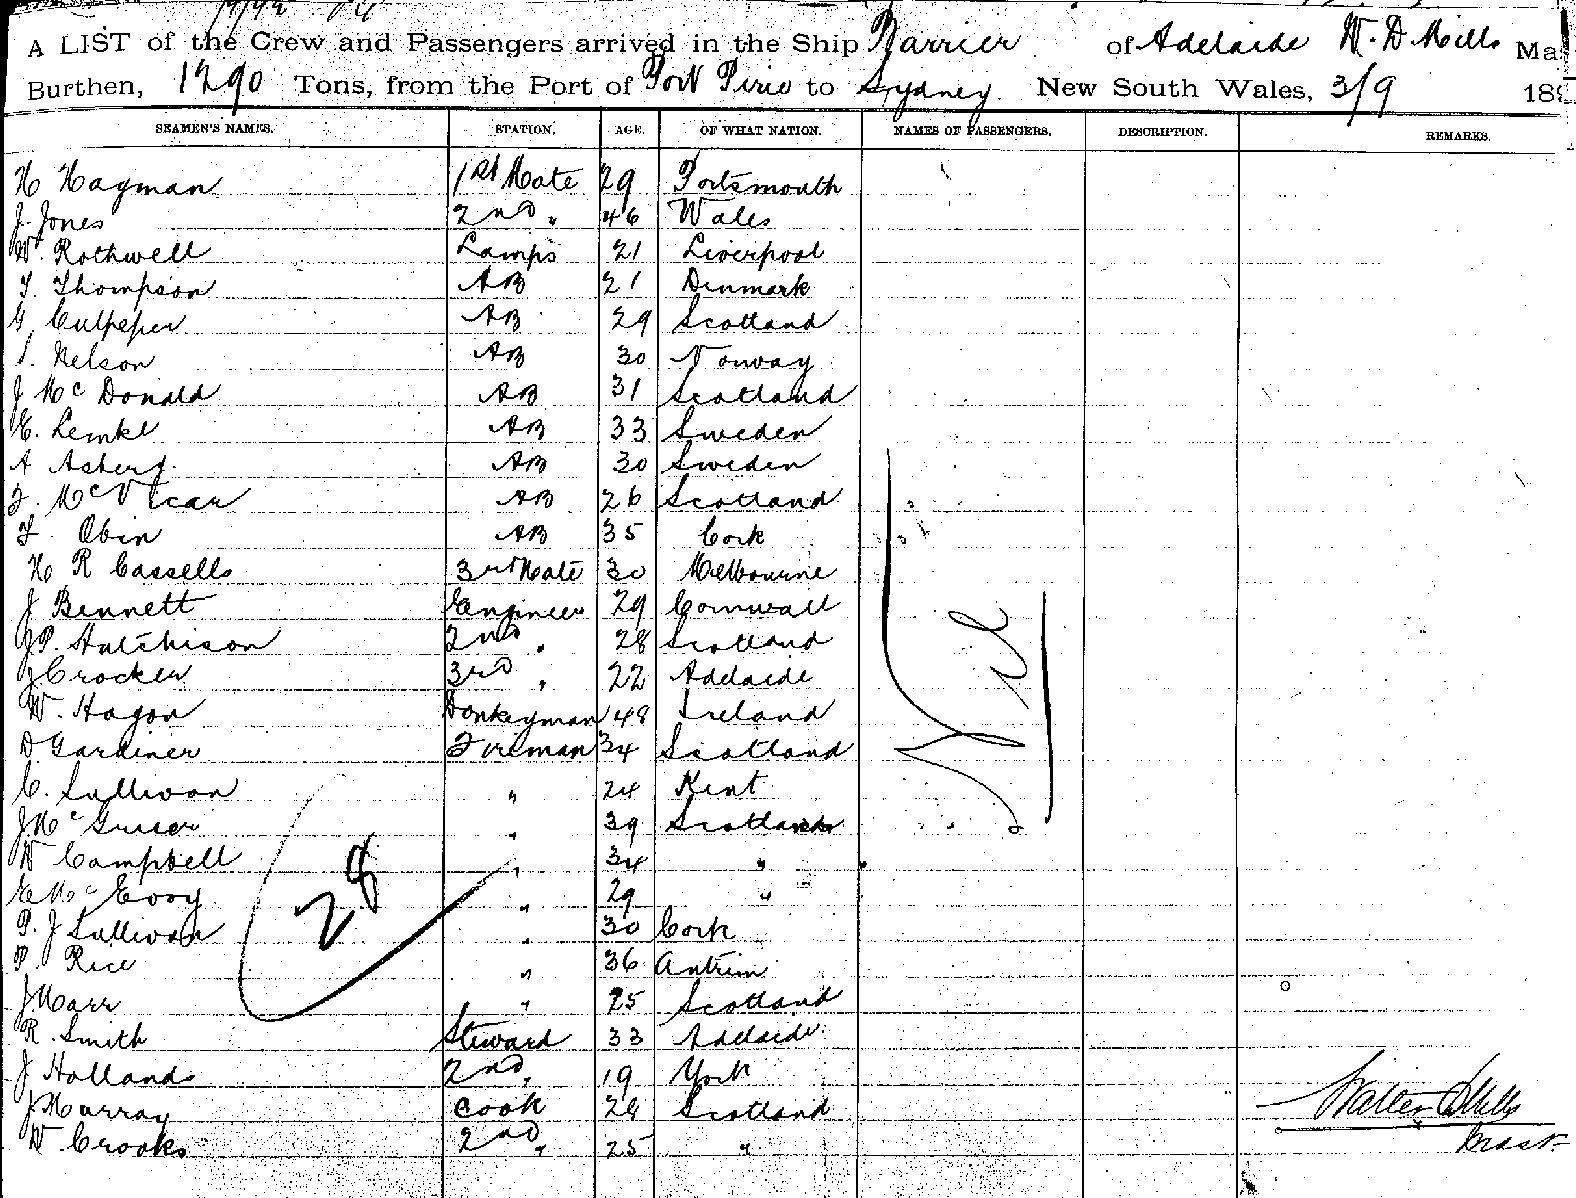 A LIST of the Crew and Passengers arrived in the Ship Barrier of Adelaide W. D Mills Ma
Burthen, 1290 Tons, from the Port of Port Pirie to Sydney New South Wales, 3/9 189
SEAMEN'S NAMES. STATION. AGE. OF WHAT NATION. NAMES OF PASSENGERS. DESCRIPTION. REMARKS.
H Hagman 1st Mate 29 Portsmouth
J. Jones 2nd " 46 Wales
W. Rothwell Lamps 21 Liverpool
T. Thompson AB 21 Denmark
G Culpeper AB 29 Scotland
Nelson AB 30 Norway
J McDonald AB 31 Scotland
E. Lemke AB 33 Sweden
A AB 30 Sweden
F. McVicar AB 26 Scotland
F. Obin AB 35 Cork
H R Cassells 3rd Mate 30 Melbourne
J Bennett Engineer 29 Cornwall
J P. Hutchison 2nd " 28 Scotland
J Crocker 3rd " 22 Adelaide
W. Hagon Donkeyman 48 Ireland
D Gardiner Fireman 34 Scotland
C. Sullivan " 24 Kent
J Mc " 39 Scotland
W Campbell " 34 "
E McEvoy " 29 "
P. J Sullivan " 30 Cork
P. Rice " 36 Antrim
J Marr " 25 Scotland
R. Smith Steward 33 Adelaide
J Hollands 2nd " 19 York
J Murray Cook 28 Scotland
W Crooks 2nd " 25 "
28
Nil
Walter D Mills
Mast.